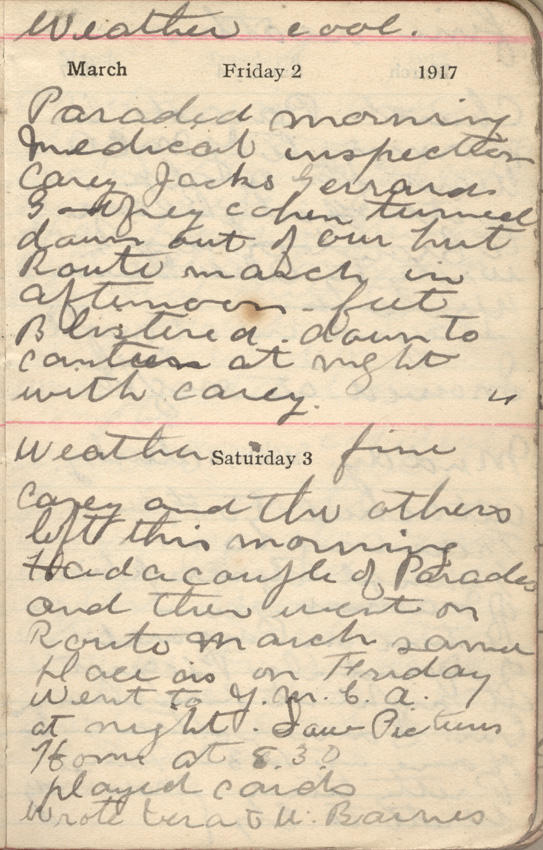 Weather cool.
March Friday 2 1917
Paraded morning
Medical inspection
Carey Jacks Gerrard
Godfrey Cohen turned
down out of our hut
Route march in
afternoon. feet
Blistered. down to
canteen at night
with carey. "
Weather fine
Saturday 3
Carey and the others
left this morning
Had a couple of Parades
and then went on
Route march same
place as on Friday
Went to Y.M.C.A.
at night. Saw Pictures
Home at 8.30
played cards
Wrote Vera & W. Barnes